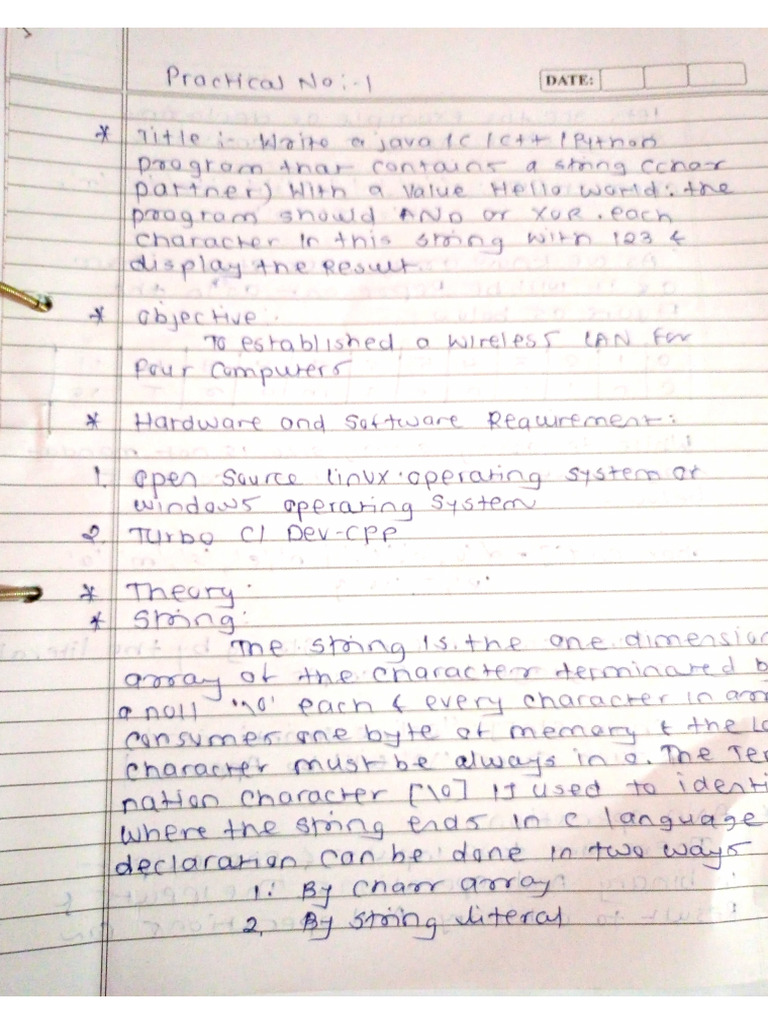 Practical No :- 1
DATE:
* Title :- Write a java / C / C++ / Python
program that contains a string (char
partner) With a value Hello world. the
program should AND or XOR . each
character in this string with 123 &
display the Result.
* Objective :
To established a wireless LAN for
Four Computers
* Hardware and Software Reaurement :
1. open source linux operating system or
windows operating system
2. Turbo C / Dev-CPP
* Theory :
* String :
The string is the one dimension
array of the character terminated b
a noll '\0' each & every character in arr
consumes one byte of memory & the la
character must be always in 0. The Ter
nation character [\0] is used to identi
where the string ends in c language
declaration can be done in two ways
1. By Charr array
2. By string literal